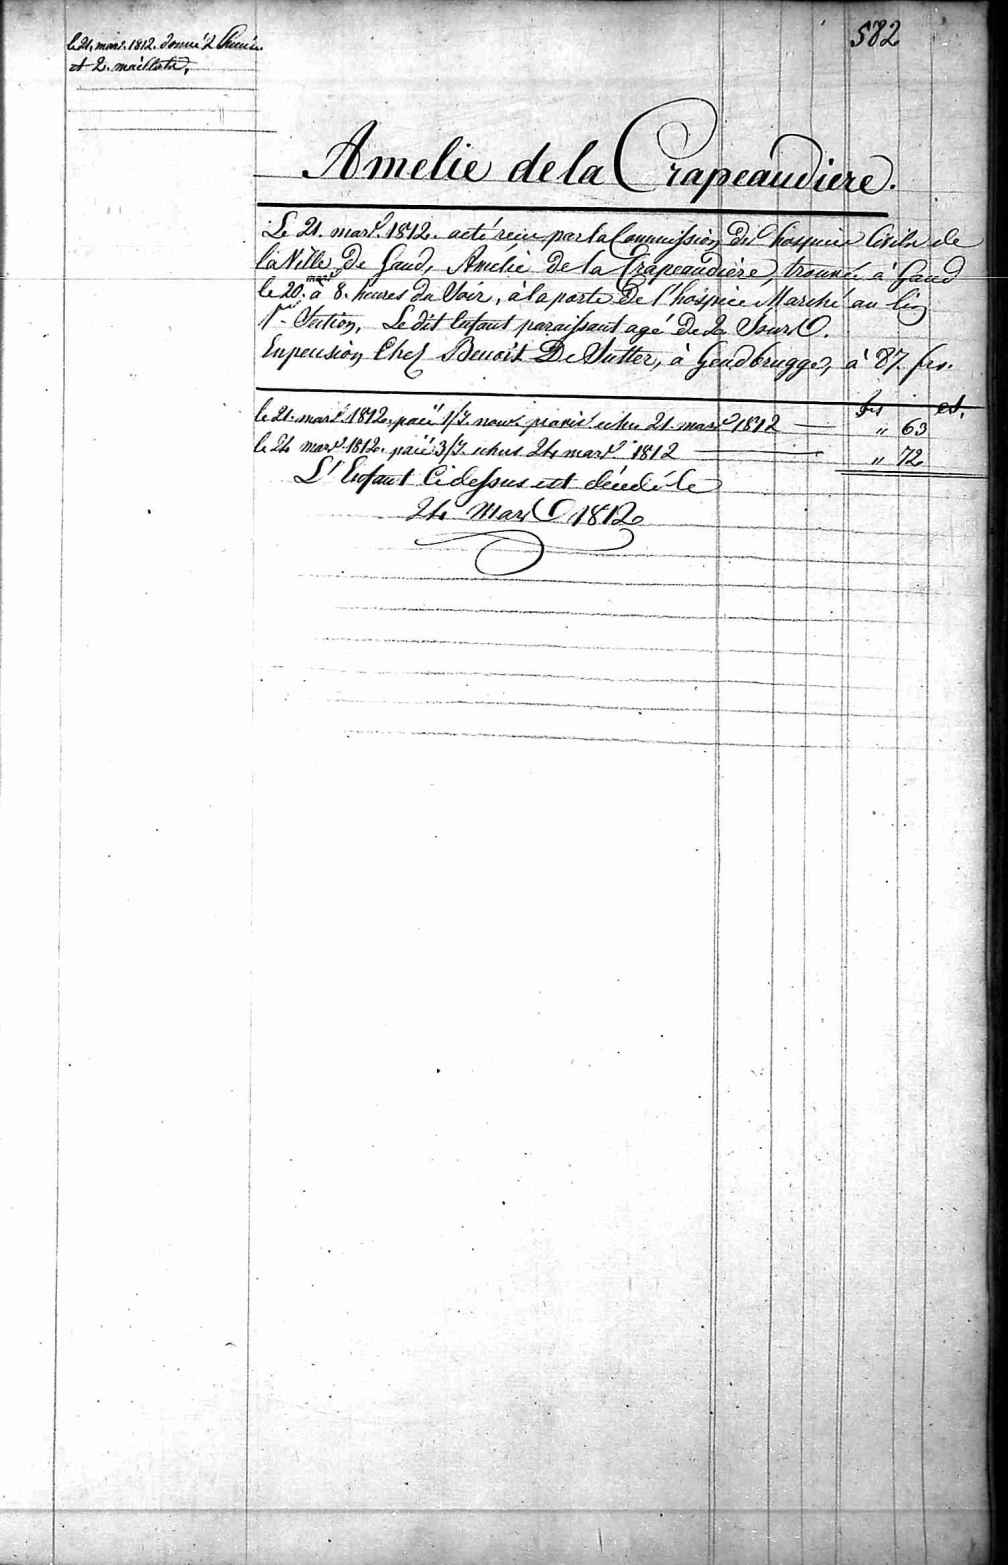 582
le 21. mars. 1812. donné 2 Chemis.
et 2. maillots,
Amelie de la Crapeaudiere.
Le 21. mars. 1812. a eté reçu par la Commission des hospices Civils de
la Ville de Gand, Amelie de la Crapeaudière, trouvée à Gand
le 20. mars à 8. heures du Soir, à la porte de l'hospice Marché au lin
1re Section, Le dit Enfant paraissant agé de 2 Jours.
En pension Chez Benoit De Sutter, à Gendbrugge, à 87. frs.
frs ct.
le 21. mars. 1812. païé 1/3. echu 21 mars 1812 — " 63
le 24 mars. 1812. païé 3/3. echus 24 mars 1812 — " 72
L'Enfant Cidessus est décédé le
24 Mars 1812